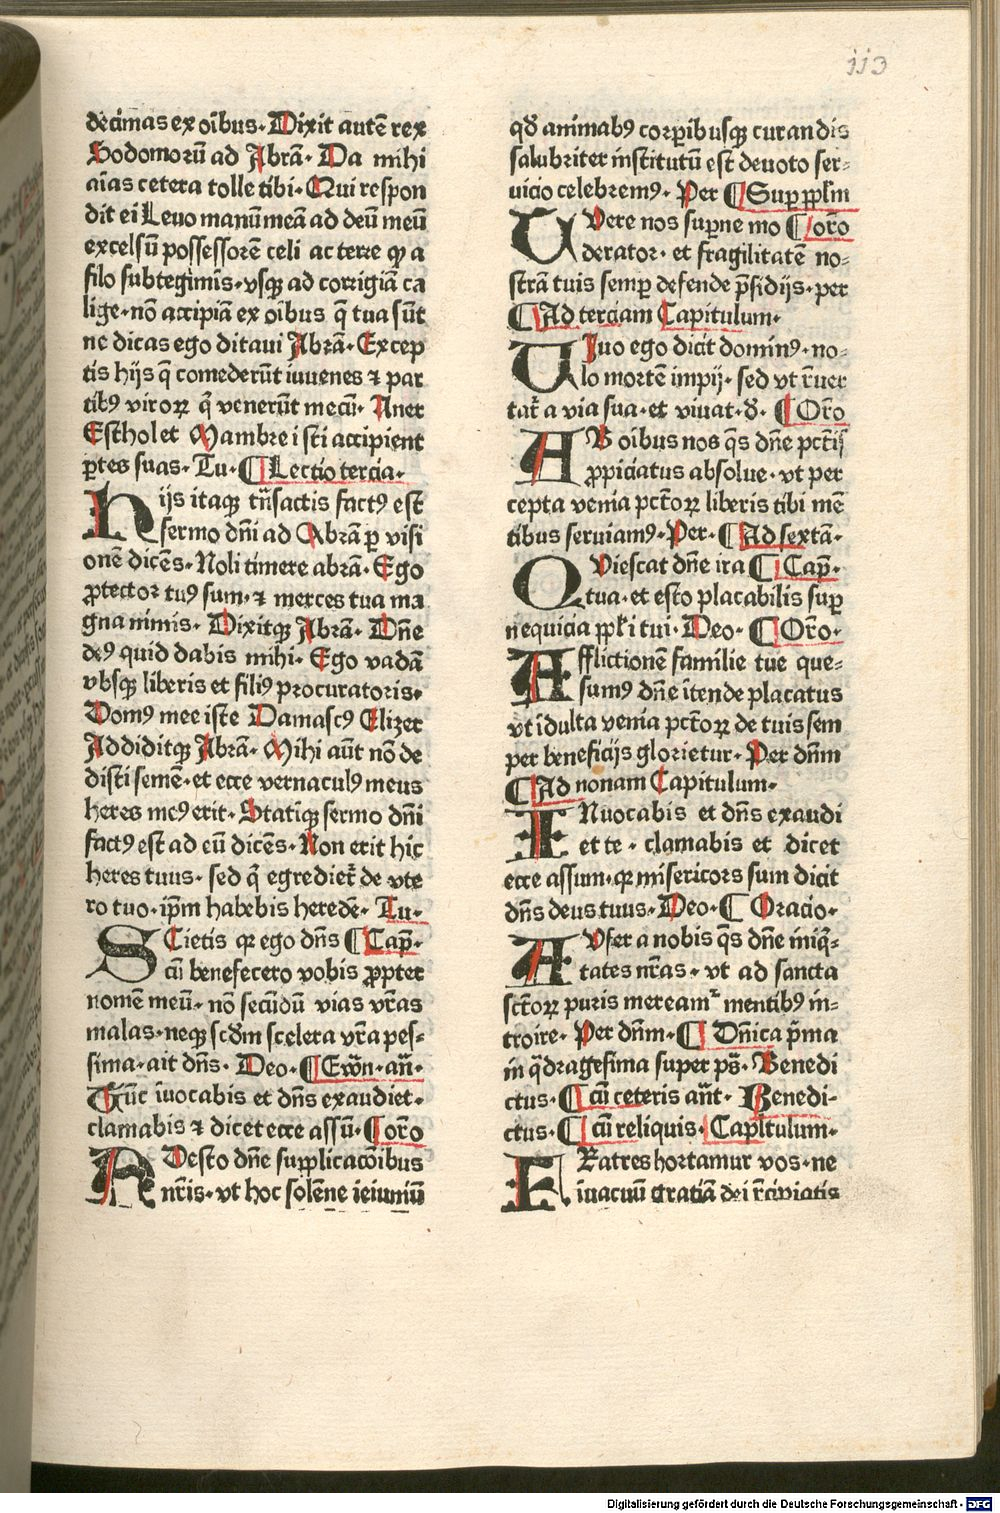 113
decimas ex oībus. Dixit autē rex
Sodomorū ad Abrā. Da mihi
aīas cetera tolle tibi. Qui respon
dit ei Leuo manū meā ad deū meū
excelsū possessorē celi ac terre qꝫ a
filo subtegimīs. vsqꝫ ad corrigiā ca
lige. nō accipiā ex oībus q̄ tua sūt
ne dicas ego ditaui Abrā. Excep
tis hijs q̄ comederūt iuuenes ⁊ par
tibꝰ viroꝝ q̄ venerūt mecū. Aner
Esthol et Mambre isti accipient
ꝑtes suas. Tu. ¶ Lectio tercia.
Hijs itaqꝫ trāsactis factꝰ est
sermo dn̄i ad Abrā ꝑ visi
onē dicēs. Noli timere abrā. Ego
ꝓtector tuꝰ sum. ⁊ merces tua ma
gna nimis. Dixitqꝫ Abrā. Dn̄e
deꝰ quid dabis mihi. Ego vadā
vbsqꝫ liberis et filiꝰ procuratoris.
Domꝰ mee iste Damascꝰ Elizer
Addiditqꝫ Abrā. Mihi aūt nō de
disti semē. et ecce vernaculꝰ meus
heres meꝰ erit. Statīqꝫ sermo dn̄i
factꝰ est ad eū dicēs. Non erit hic
heres tuus. sed q̄ egrediet̄ de vte
ro tuo. ip̄m habebis heredē. Tu.
SCietis qꝛ ego dn̄s ¶ Cap̄.
cū benefecero vobis ꝓpter
nomē meū. nō secūdū vias vr̄as
malas. neqꝫ scd̄m scelera vr̄a pes⸗
sima. ait dn̄s. Deo. ¶ Ewn̄. an̄.
Tūc īuocabis et dn̄s exaudiet.
clamabis ⁊ dicet ecce assū. Coro
ADesto dn̄e supplicacōibus
nr̄is. vt hoc solēne ieiuniū
qd̄ animabꝰ corꝑibusqꝫ curandis
salubriter institutū est deuoto ser⸗
uicio celebremꝰ. Per ¶ Suꝑ pplm̄
TVere nos suꝑne mo ¶ oro
derator. et fragilitatē no⸗
strā tuis semꝑ defende p̄sidijs. per
¶ Ad terciam Capitulum.
VIuo ego dicit dominꝰ. no⸗
lo mortē impij. sed vt r̄uer
tat̄ a via sua. et viuat. d̄. ¶ Or̄o
AB oībus nos q̄s dn̄e pctīs
ꝓpiciatus absolue. vt per
cepta venia pctōꝝ liberis tibi mē
tibus seruiamꝰ. Per. ¶ Ad sextā.
QViescat dn̄e ira ¶ Cap̄.
tua. et esto placabilis suꝑ
nequicia ppl̄i tui. Deo. ¶ Or̄o.
Afflictionē familie tue que⸗
sumꝰ dn̄e ītende placatus
vt īdulta venia pctōꝝ de tuis sem
per beneficijs glorietur. Per dn̄m
¶ Ad nonam Capitulum.
INuocabis et dn̄s exaudi
et te. clamabis et dicet
ecce assum. qꝛ misericors sum dicit
dn̄s deus tuus. Deo. ¶ Oracio.
AVfer a nobis q̄s dn̄e iniq̄⸗
tates nr̄as. vt ad sancta
sctōꝝ puris meream̄ mentibꝰ in⸗
troire. Per dn̄m. ¶ Dn̄ica p̄ma
in q̄dragesima super ps̄. Benedi
ctus. ¶ cū ceteris an̄t. Benedi⸗
ctus. ¶ cū reliquis. Capitulum.
FRatres hortamur vos. ne
īuacuū gratiā dei r̄cipiatis
Digitalisierung gefördert durch die Deutsche Forschungsgemeinschaft - DFG